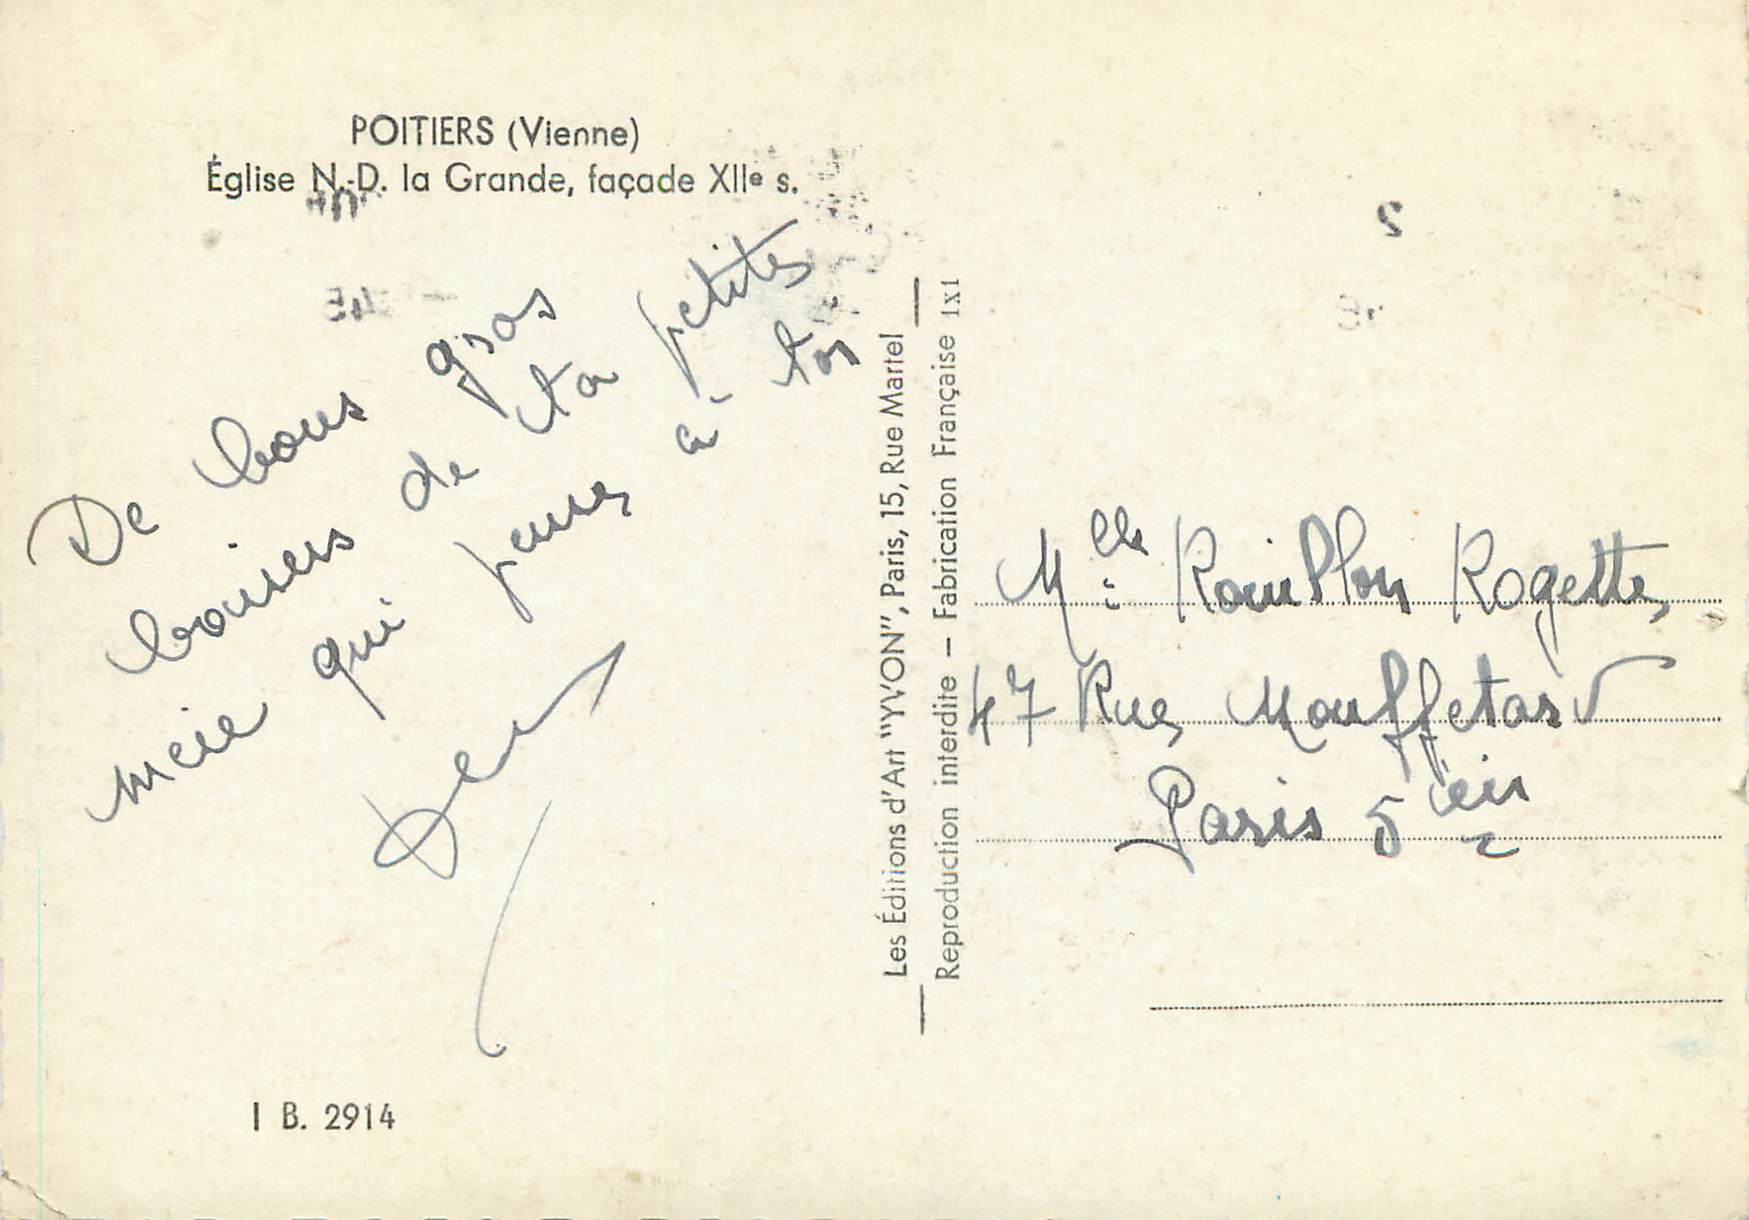 POITIERS (Vienne)
Église N.-D. la Grande, façade XIIe s.
De bons gros
baisers de ta petite
mère qui pense à toi
Les Éditions d'Art "YVON", Paris, 15, Rue Martel
Reproduction interdite — Fabrication Française 1x1
Mlle Rouillon Rogette
47 Rue Mouffetard
Paris 5
I B. 2914